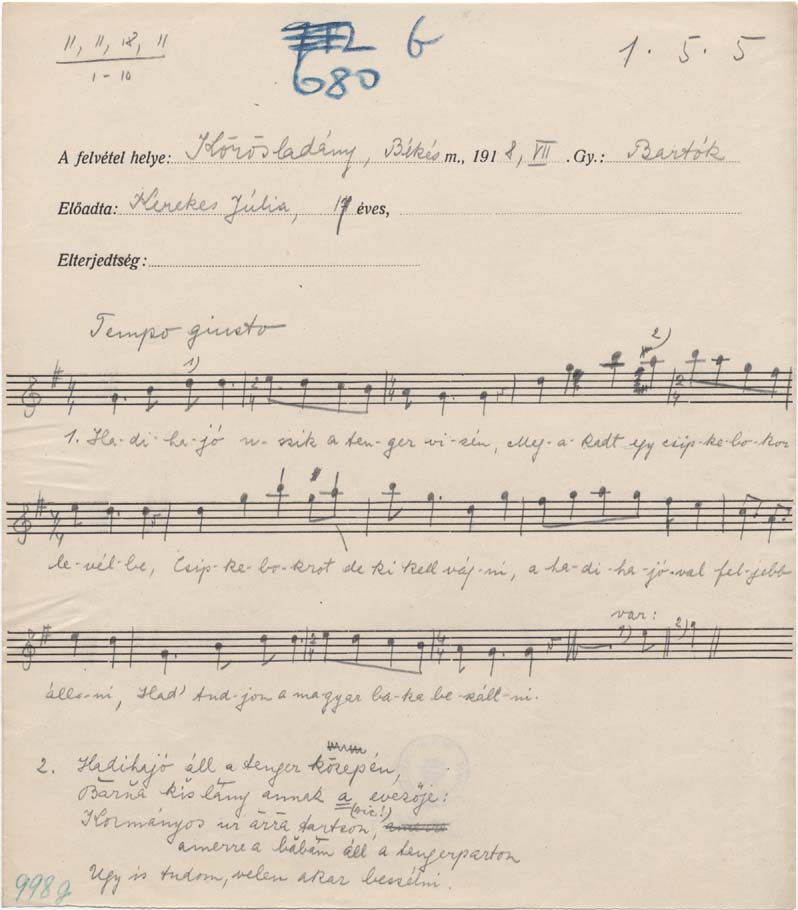 11, 11, 18, 11
1-10
680
6
1. 5. 5
A felvétel helye: Körösladány, Békés m., 1918, VII. Gy.: Bartók
Előadta: Kerekes Júlia, 17 éves,
Elterjedtség:
Tempo giusto
1) 2)
1. Ha-di-ha-jó u-szik a ten-ger vi-zén, Meg-a-kadt egy csip-ke-bo-kor
le-vél-be, Csip-ke-bo-krot de ki kell vág-ni, a ha-di-ha-jó-val fel-jebb
álla-ni, Had' tud-jon a magyar ba-ka be-száll-ni.
var:
1) 2)
2. Hadihajó áll a tenger közepén,
Barna kis lány annak a evezője:
(sic!)
Kormányos ur arra tartson,
amerre a babám áll a tengerparton
Ugy is tudom, velem akar beszélni.
998g